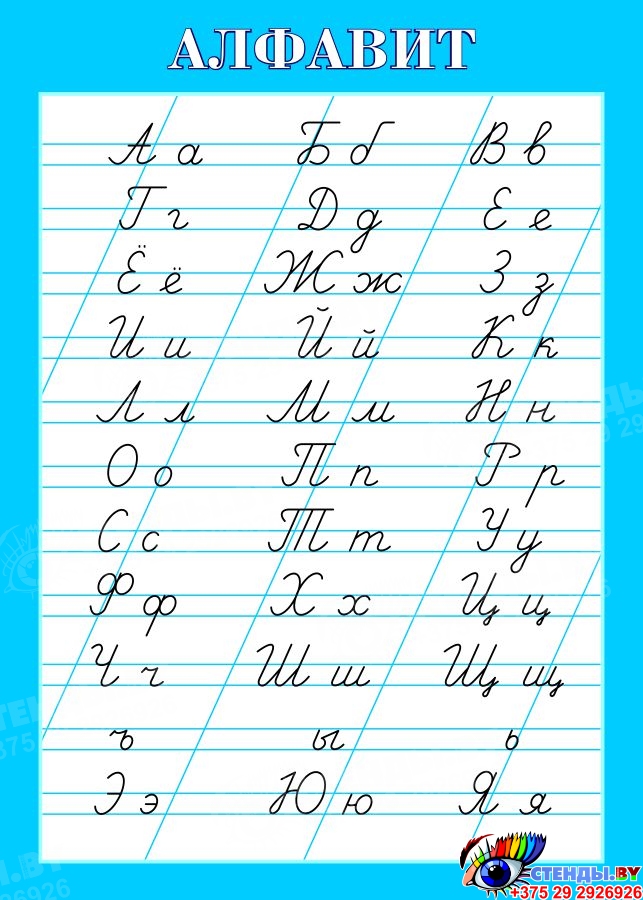 АЛФАВИТ
А а Б б В в
Г г Д д Е е
Ё ё Ж ж З з
И и Й й К к
Л л М м Н н
О о П п Р р
С с Т т У у
Ф ф Х х Ц ц
Ч ч Ш ш Щ щ
ъ ы ь
Э э Ю ю Я я
СТЕНДЫ.BY
+375 29 2926926